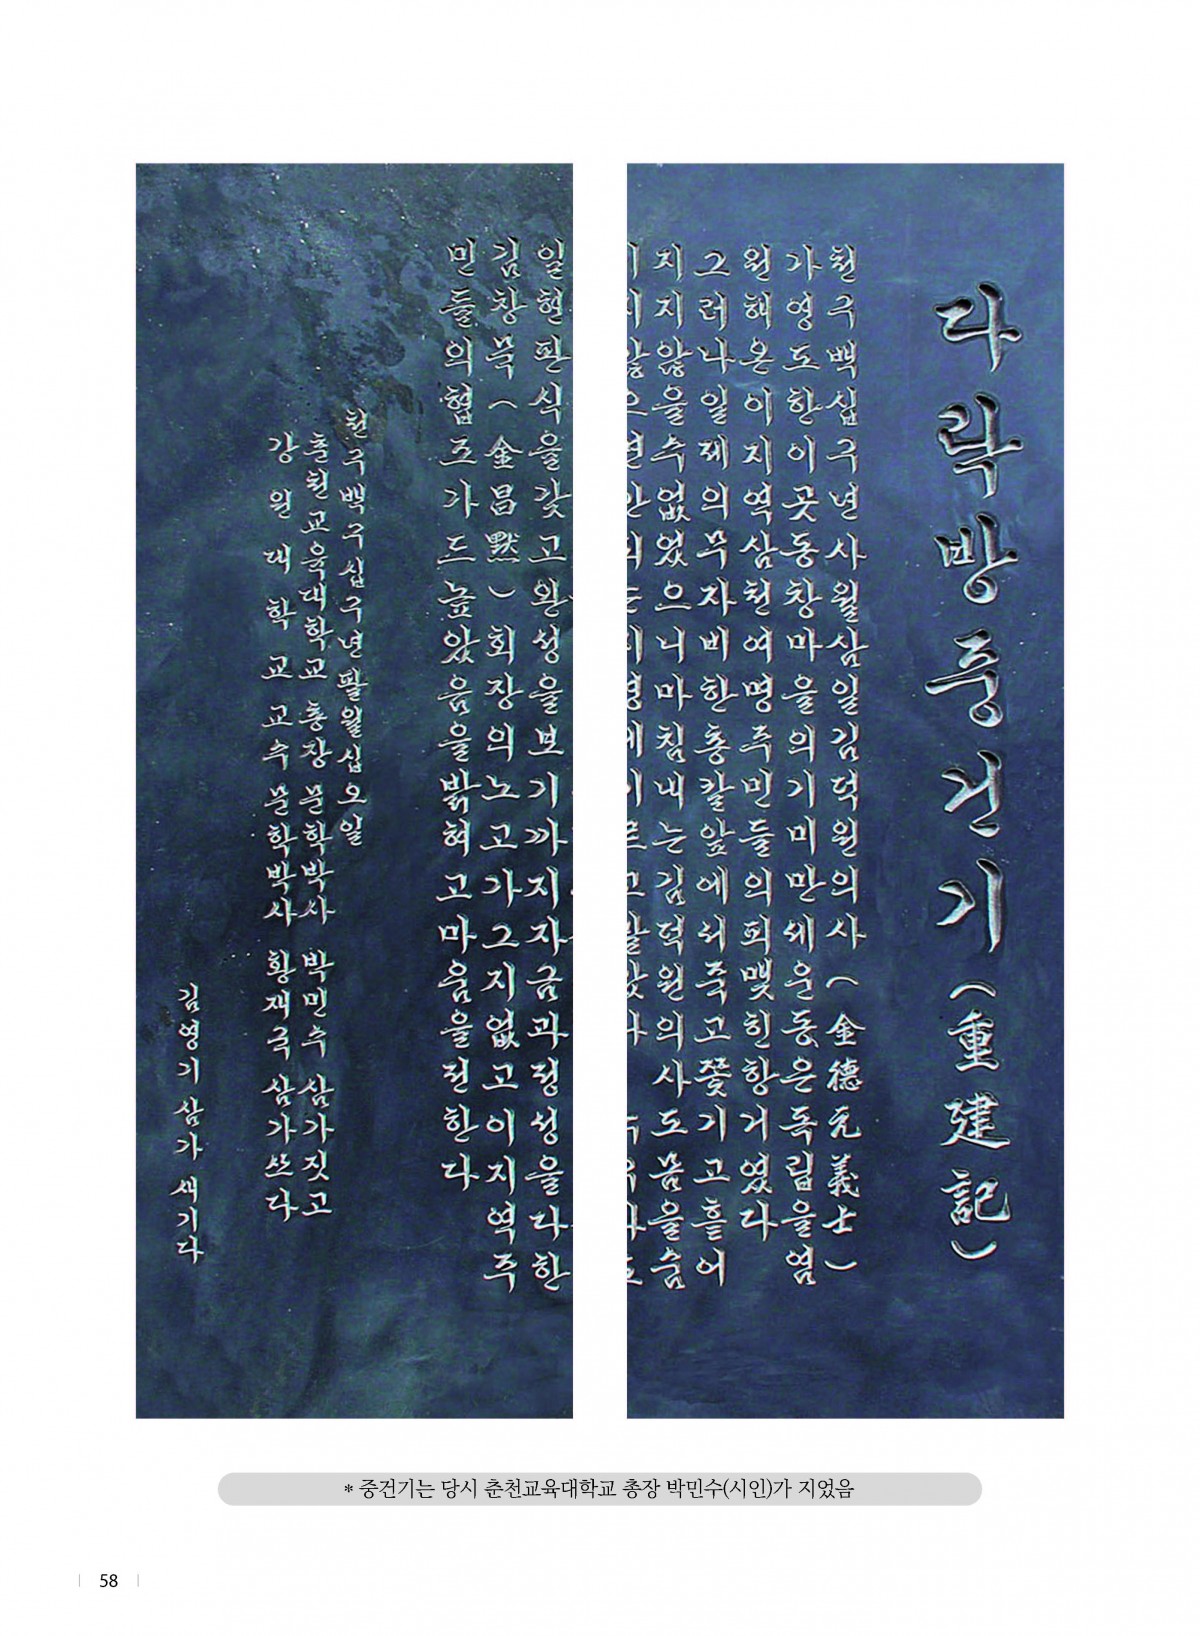 다락방중건기(重建記)
천구백십구년사월삼일김덕원의사(金德元義士)
가영도한이곳동창마을의기미만세운동은독립을염
원해온이지역삼천여명주민들의피맺힌항거였다
그러나일제의무자비한총칼앞에서죽고쫓기고흩어
지지않을수없었으니마침내는김덕원의사도몸을숨
일현판식을갖고완성을보기까지자금과정성을다한
김창묵(金昌默)회장의노고가그지없고이지역주
민들의협조가드높았음을밝혀고마움을전한다
천구백구십구년팔월십오일
춘천교육대학교 총장 문학박사 박민수 삼가짓고
강원대학교 교수 문학박사 황재국 삼가쓰다
김영기삼가 새기다
* 중건기는 당시 춘천교육대학교 총장 박민수(시인)가 지었음
58